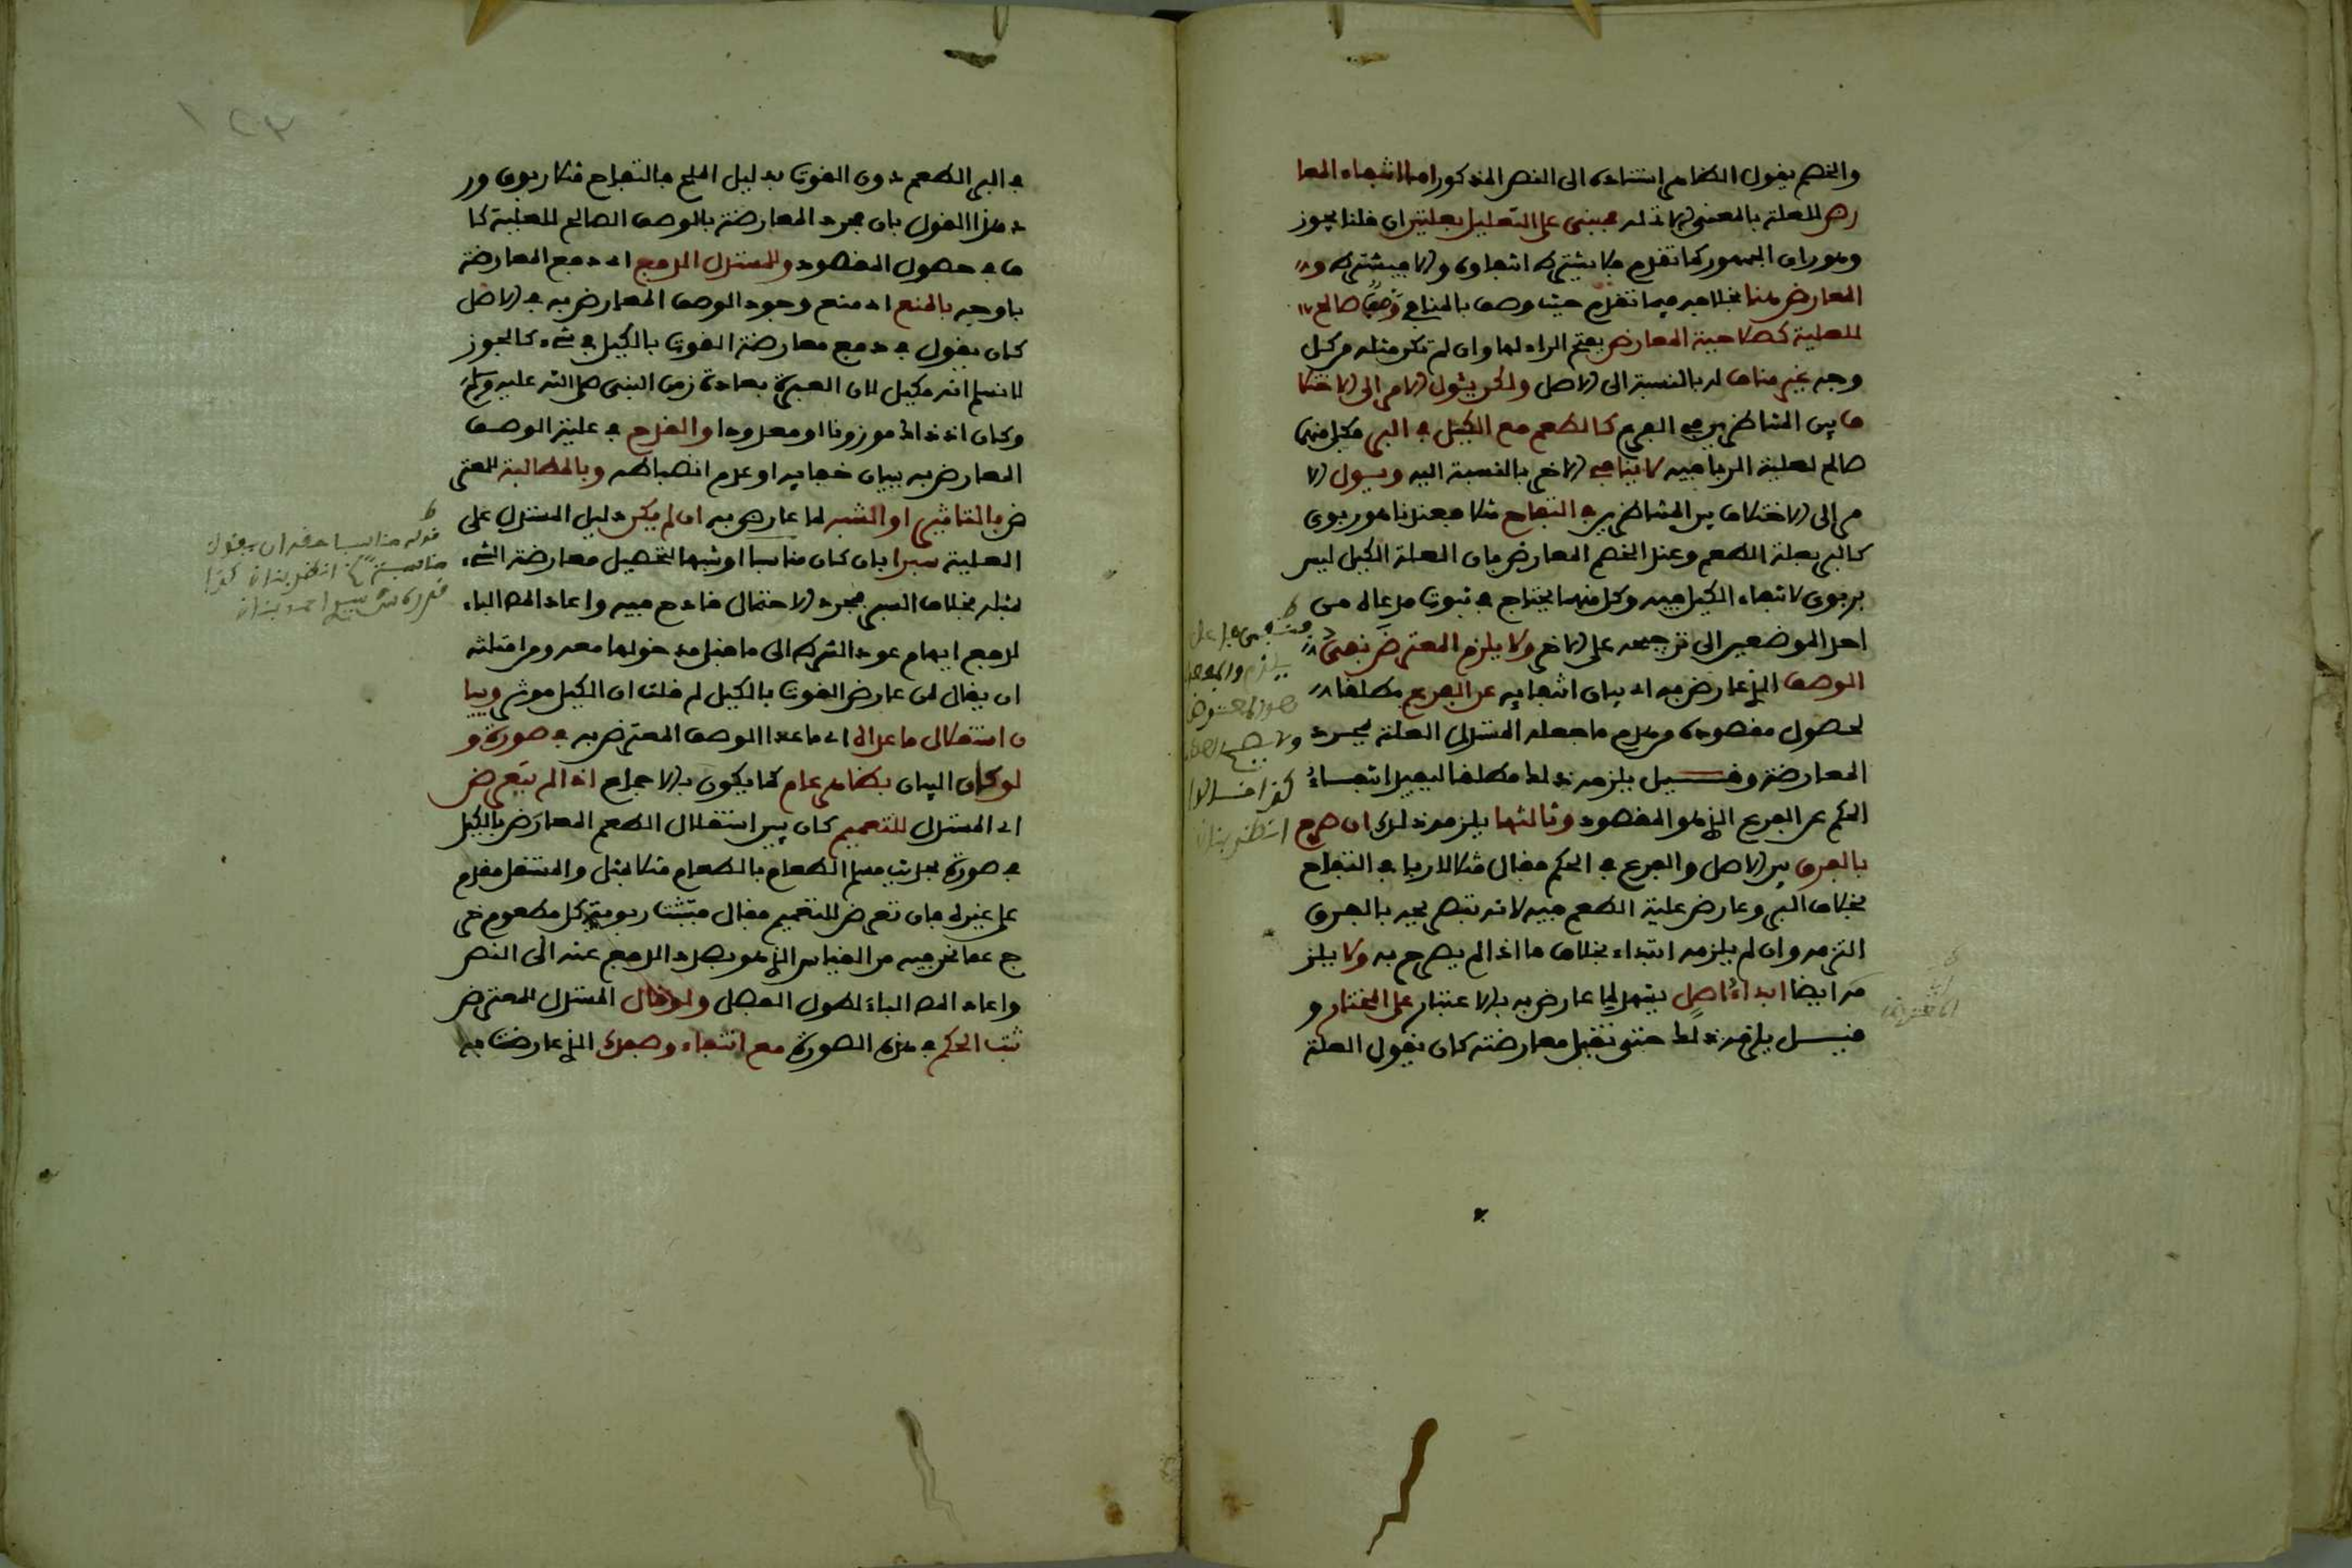 والخصم يقول الظاهر استناده الى النص المذكور اما انتفاء المعا
رض للعلة بالمعنى الاتي له فمبني على التعليل بعلتين ان قلنا يجوز
وهو راى الجمهور كما تقدم فلا يشترط انتفاوه والا فيشترط وال
المعارض هنا بخلافه فيما تقدم حيث وصف بالمنافي وصف صالح
للعلية كصلاحية المعارض بفتح الراء لها وان لم تكن مثله من كل
وجه غير مناف له بالنسبة الى الاصل ولكن يئول الامر الى الاختلا
ف بين المتناظرين في الفرع كالطعم مع الكيل في البر فكل منهما
صالح لعلية الربا فيه لا ينافي الاخر بالنسبة اليه ويئول الا
مر الى الاختلاف بين المتناظرين في التفاح مثلا فعندنا هو ربوي
كالبر بعلة الطعم وعند الخصم المعارض بان العلة الكيل ليس
بربوي لانتفاء الكيل فيه وكل منهما يحتاج في ثبوت مدعاه من
احد الموضعين الى ترجيحه على الاخر ولا يلزم المعترض نفي
الوصف الذي عارض به اي بيان انتفايه عن الفرع مطلقا
لحصول مقصوده من هدم ما جعله المستدل العلة بمجرد
المعارضة وقيل يلزمه ذلك مطلقا ليفيد انتفاء
الحكم عن الفرع الذي هو المقصود وثالثها يلزمه ذلك ان صرح
بالفرق بين الاصل والفرع في الحكم فقال مثلا لا ربا في التفاح
بخلاف البر وعارض علية الطعم فيه لانه بتصريحه بالفرق
التزمه وان لم يلزمه ابتداء بخلاف ما اذا لم يصرح به ولا يلز
مه ايضا ابداء اصل يشهد لما عارض به بالاعتبار على المختار و
قيل يلزمه ذلك حتى تقبل معارضته كان يقول العلة
في البر الطعم دون القوت بدليل الملح فالتفاح مثلا ربوي ور
د هذا القول بان مجرد المعارضة بالوصف الصالح للعلية كا
ف في حصول المقصود وللمستدل الدفع اي دفع المعارضة
باوجه بالمنع اي منع وجود الوصف المعارض به في الاصل
كان يقول في دفع معارضة القوت بالكيل في شيء كالجوز
لا نسلم انه مكيل لان العبرة بعادة زمن النبي صلى الله عليه وسلم
وكان اذ ذاك موزونا او معدودا والقدح في علية الوصف
المعارض به ببيان خفايه او عدم انضباطه وبالمطالبة للمعتر
ض بالتاثير او الشبه لما عارض به ان لم يكن دليل المستدل على
العلية سبرا بان كان مناسبا او شبها لتحصيل معارضة الشيء
بمثله بخلاف السبر فمجرد الاحتمال قادح فيه واعاد المص الباء
لدفع ايهام عود الشرط الى ما قبل مدخولها معه ومن امثلته
ان يقال لمن عارض القوت بالكيل لم قلت ان الكيل موثر وببيا
ن استقلال ما عداه اي ما عدا الوصف المعترض به في صورة و
لو كان البيان بظاهر عام كما يكون بالاجماع اذا لم يتعرض
اي المستدل للتعميم كان يبين استقلال الطعم المعارض بالكيل
في صورة بحديث مسلم الطعام بالطعام مثلا بمثل والمستقل مقدم
على غيره فان تعرض للتعميم فقال فتثبت ربوية كل مطعوم خر
ج عما نحن فيه من القياس الذي هو بصدد الدفع عنه الى النص
واعاد المص الباء لطول الفصل ولو قال المستدل للمعترض
ثبت الحكم في هذه الصورة مع انتفاء وصفك الذي عارضت به